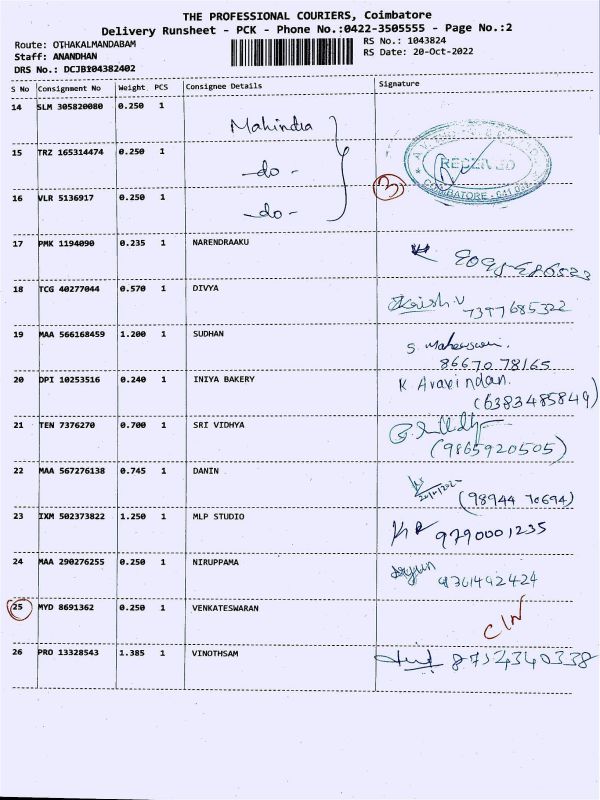 THE PROFESSIONAL COURIERS, Coimbatore
Delivery Runsheet - PCK - Phone No.:0422-3505555 - Page No.:2
Route: OTHAKALMANDABAM
RS No.: 1043824
Staff: ANANDHAN
RS Date: 20-Oct-2022
DRS No.: DCJB104382402
S No Consignment No Weight PCS Consignee Details Signature
14 SLM 305820080 0.250 1
Mahindra
15 TRZ 165314474 0.250 1
-do-
RECEIVED
3
COIMBATORE - 641 021
16 VLR 5136917 0.250 1
-do-
17 PMK 1194090 0.235 1 NARENDRAAKU
18 TCG 40277044 0.570 1 DIVYA
7397685322
19 MAA 566168459 1.200 1 SUDHAN
S. Maheswari.
86670 78165
20 DPI 10253516 0.240 1 INIYA BAKERY
K. Aravindan.
(6383485849)
21 TEN 7376270 0.700 1 SRI VIDHYA
(9865920505)
22 MAA 567276138 0.745 1 DANIN
(98944 70694)
23 IXM 502373822 1.250 1 MLP STUDIO
9790001235
24 MAA 290276255 0.250 1 NIRUPPAMA
Arjun
9361492424
25 MYD 8691362 0.250 1 VENKATESWARAN
CIN
26 PRO 13328543 1.385 1 VINOTHSAM
8754340338